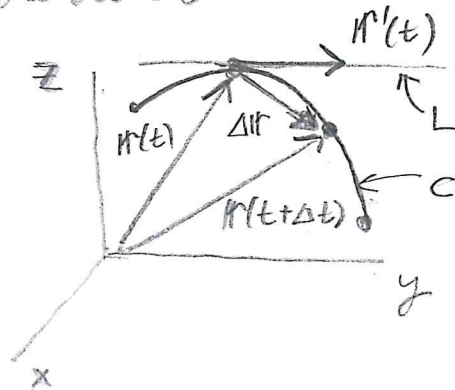 𝕣'(t)
z
L
𝕣(t)
Δ𝕣
C
𝕣(t+Δt)
y
x